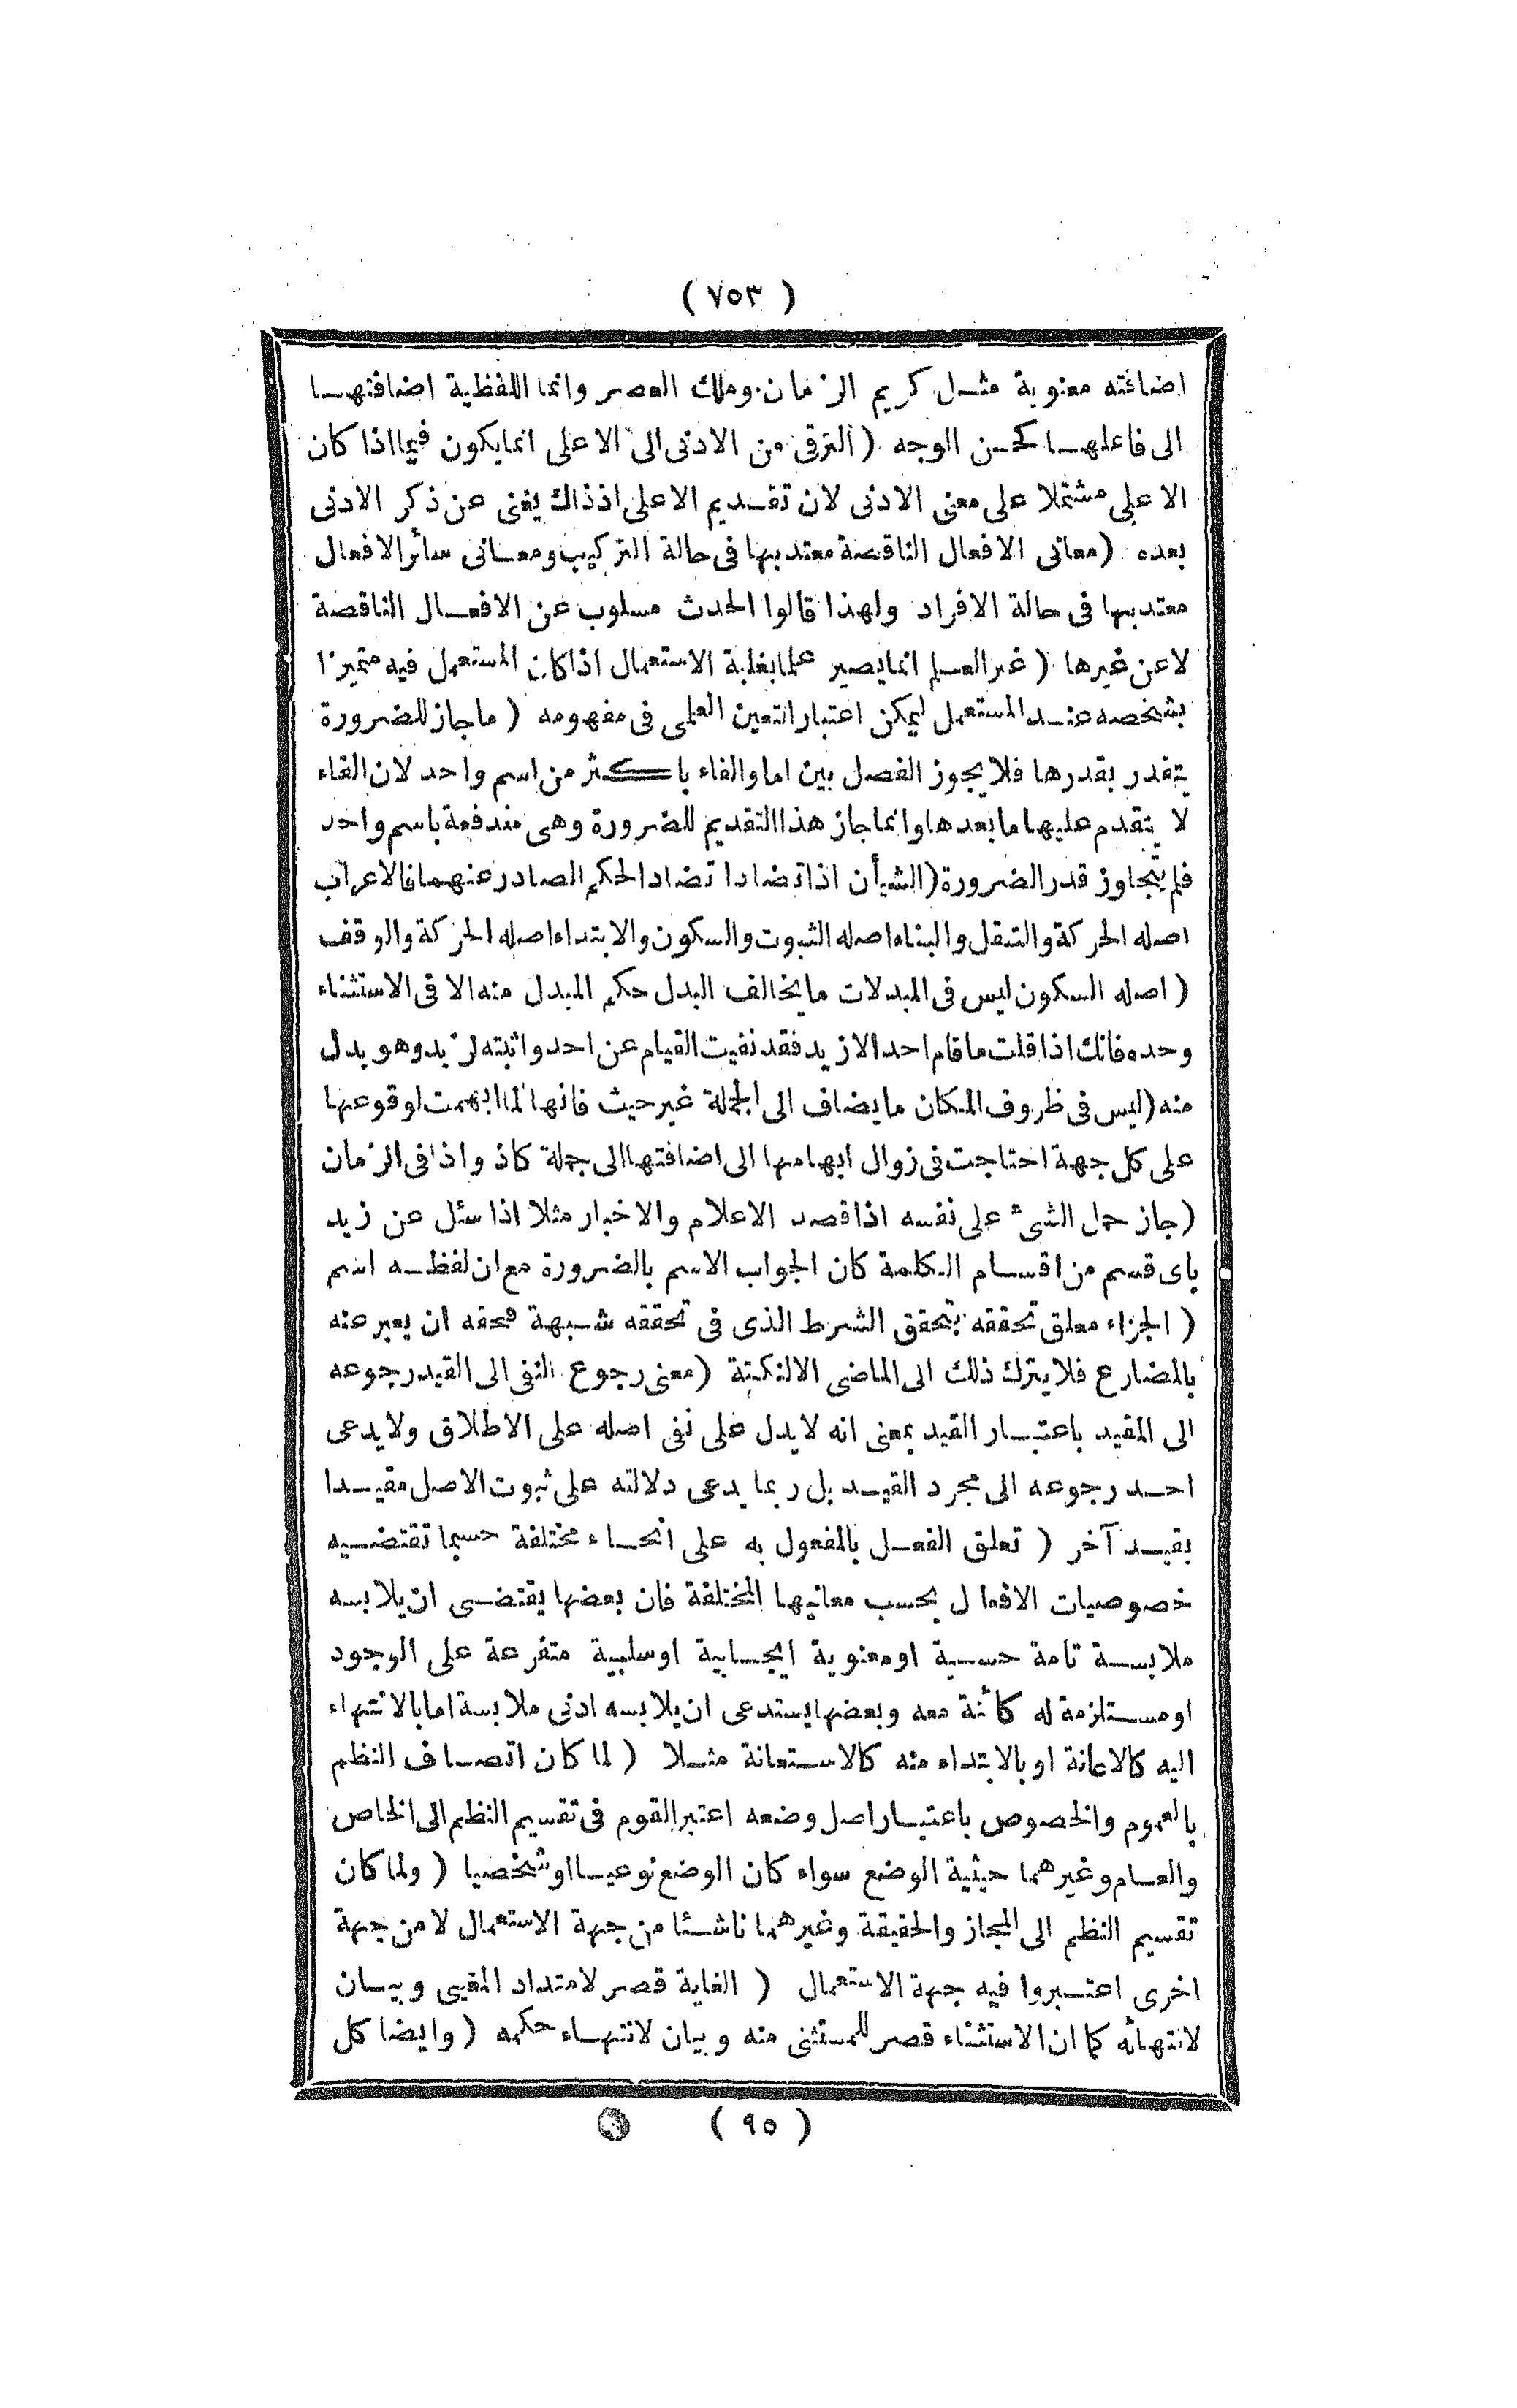 ( ٧٥٣ )
اضافته معنوية مثل كريم الزمان وملك العصر وانما اللفظية اضافتها
الى فاعلها كحسن الوجه ( الترقى من الادنى الى الاعلى انما يكون فيما اذا كان
الاعلى مشتملا على معنى الادنى لان تقديم الاعلى اذ ذاك يغنى عن ذكر الادنى
بعده ( معانى الافعال الناقصة معتد بها فى حالة التركيب ومعانى سائر الافعال
معتد بها فى حالة الافراد ولهذا قالوا الحدث مسلوب عن الافعال الناقصة
لا عن غيرها ( غير العلم انما يصير علما بغلبة الاستعمال اذا كان المستعمل فيه متميزا
بشخصه عند المستعمل ليمكن اعتبار التعين العلمى فى مفهومه ( ما جاز للضرورة
يتقدر بقدرها فلا يجوز الفصل بين اما والفاء باكثر من اسم واحد لان الفاء
لا يتقدم عليها ما بعدها وانما جاز هذا التقديم للضرورة وهى مندفعة باسم واحد
فلم يتجاوز قدر الضرورة ( الشيأن اذا تضادا تضاد الحكم الصادر عنهما فالاعراب
اصله الحركة والتنقل والبناء اصله الثبوت والسكون والابتداء اصله الحركة والوقف
( اصله السكون ليس فى المبدلات ما يخالف البدل حكم المبدل منه الا فى الاستثناء
وحده فانك اذا قلت ما قام احد الا زيد فقد نفيت القيام عن احد واثبته لزيد وهو بدل
منه ( ليس فى ظروف المكان ما يضاف الى الجملة غير حيث فانها لما ابهمت لوقوعها
على كل جهة احتاجت فى زوال ابهامها الى اضافتها الى جملة كاذ واذا فى الزمان
( جاز حمل الشئ على نفسه اذا قصد الاعلام والاخبار مثلا اذا سئل عن زيد
باى قسم من اقسام الكلمة كان الجواب الاسم بالضرورة مع ان لفظه اسم
( الجزاء معلق تحققه بتحقق الشرط الذى فى تحققه شبهة فحقه ان يعبر عنه
بالمضارع فلا يترك ذلك الى الماضى الا لنكتة ( معنى رجوع النفى الى القيد رجوعه
الى المقيد باعتبار القيد بمعنى انه لا يدل على نفى اصله على الاطلاق ولا يدعى
احد رجوعه الى مجرد القيد بل ربما يدعى دلالته على ثبوت الاصل مقيدا
بقيد آخر ( تعلق الفعل بالمفعول به على انحاء مختلفة حسبما تقتضيه
خصوصيات الافعال بحسب معانيها المختلفة فان بعضها يقتضى ان يلابسه
ملابسة تامة حسية او معنوية ايجابية او سلبية متفرعة على الوجود
او مستلزمة له كائنة معه وبعضها يستدعى ان يلابسه ادنى ملابسة اما بالانتهاء
اليه كالاعانة او بالابتداء منه كالاستعانة مثلا ( لما كان اتصاف النظم
بالعموم والخصوص باعتبار اصل وضعه اعتبر القوم فى تقسيم النظم الى الخاص
والعام وغيرهما حيثية الوضع سواء كان الوضع نوعيا او شخصيا ( ولما كان
تقسيم النظم الى المجاز والحقيقة وغيرهما ناشئا من جهة الاستعمال لا من جهة
اخرى اعتبروا فيه جهة الاستعمال ( الغاية قصر لامتداد المغيى وبيان
لانتهائه كما ان الاستثناء قصر للمستثنى منه وبيان لانتهاء حكمه ( وايضا كل
( ٩٥ )